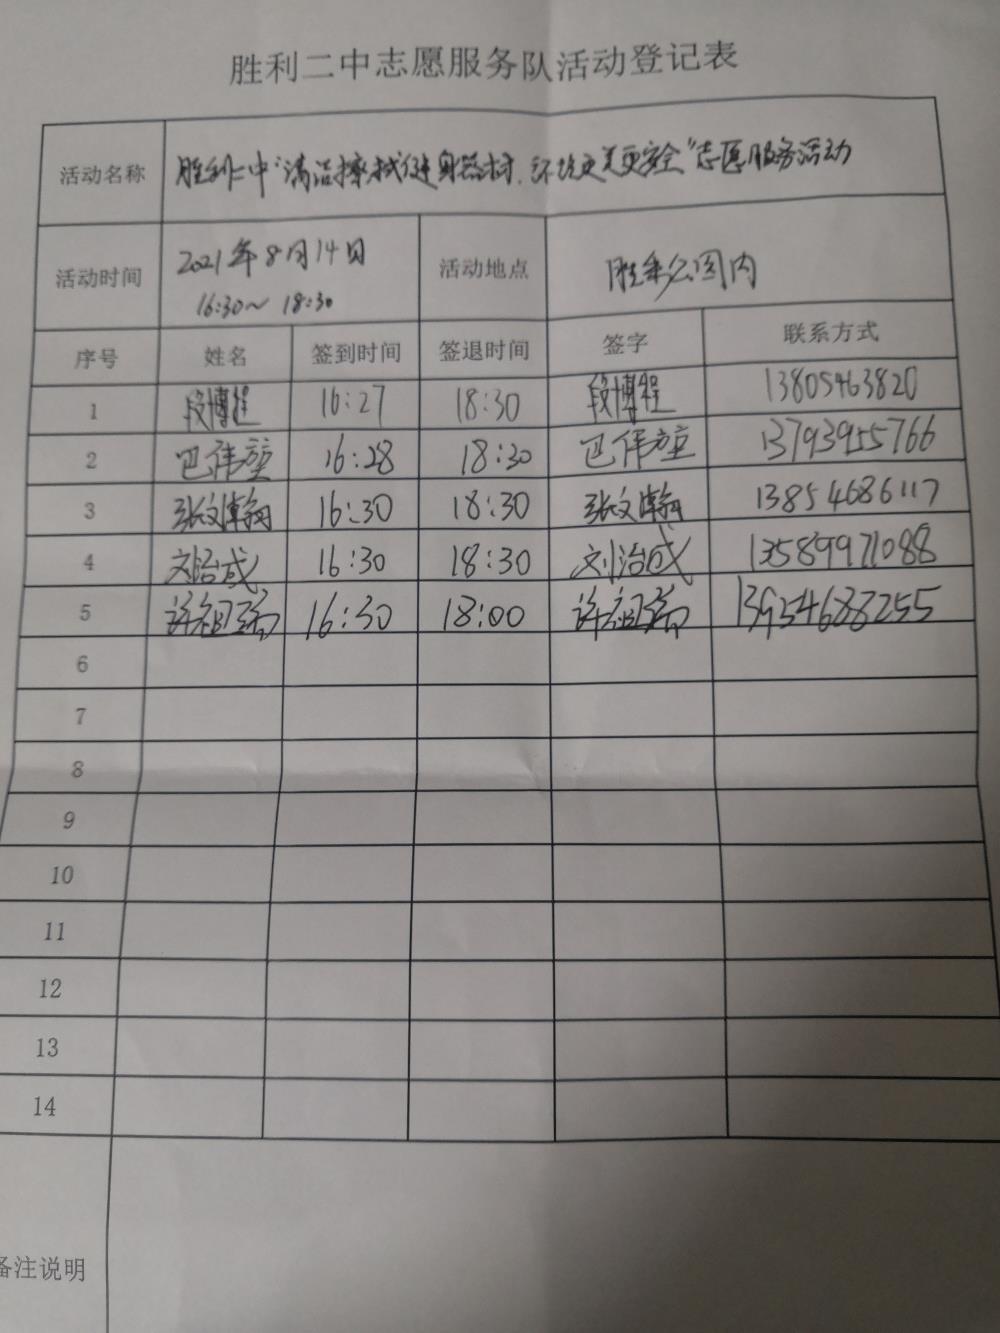 胜利二中志愿服务队活动登记表
活动名称 胜利二中“清洁擦拭健身器材、环境更美更安全”志愿服务活动
活动时间 2021年8月14日 活动地点 胜利公园内
16:30~18:30
序号 姓名 签到时间 签退时间 签字 联系方式
1 段博程 16:27 18:30 段博程 13805463820
2 巴伟堃 16:28 18:30 巴伟堃 13793955766
3 张文瀚 16:30 18:30 张文瀚 13854686117
4 刘治成 16:30 18:30 刘治成 13589971088
5 许祖瑞 16:30 18:00 许祖瑞 13954688255
6
7
8
9
10
11
12
13
14
备注说明